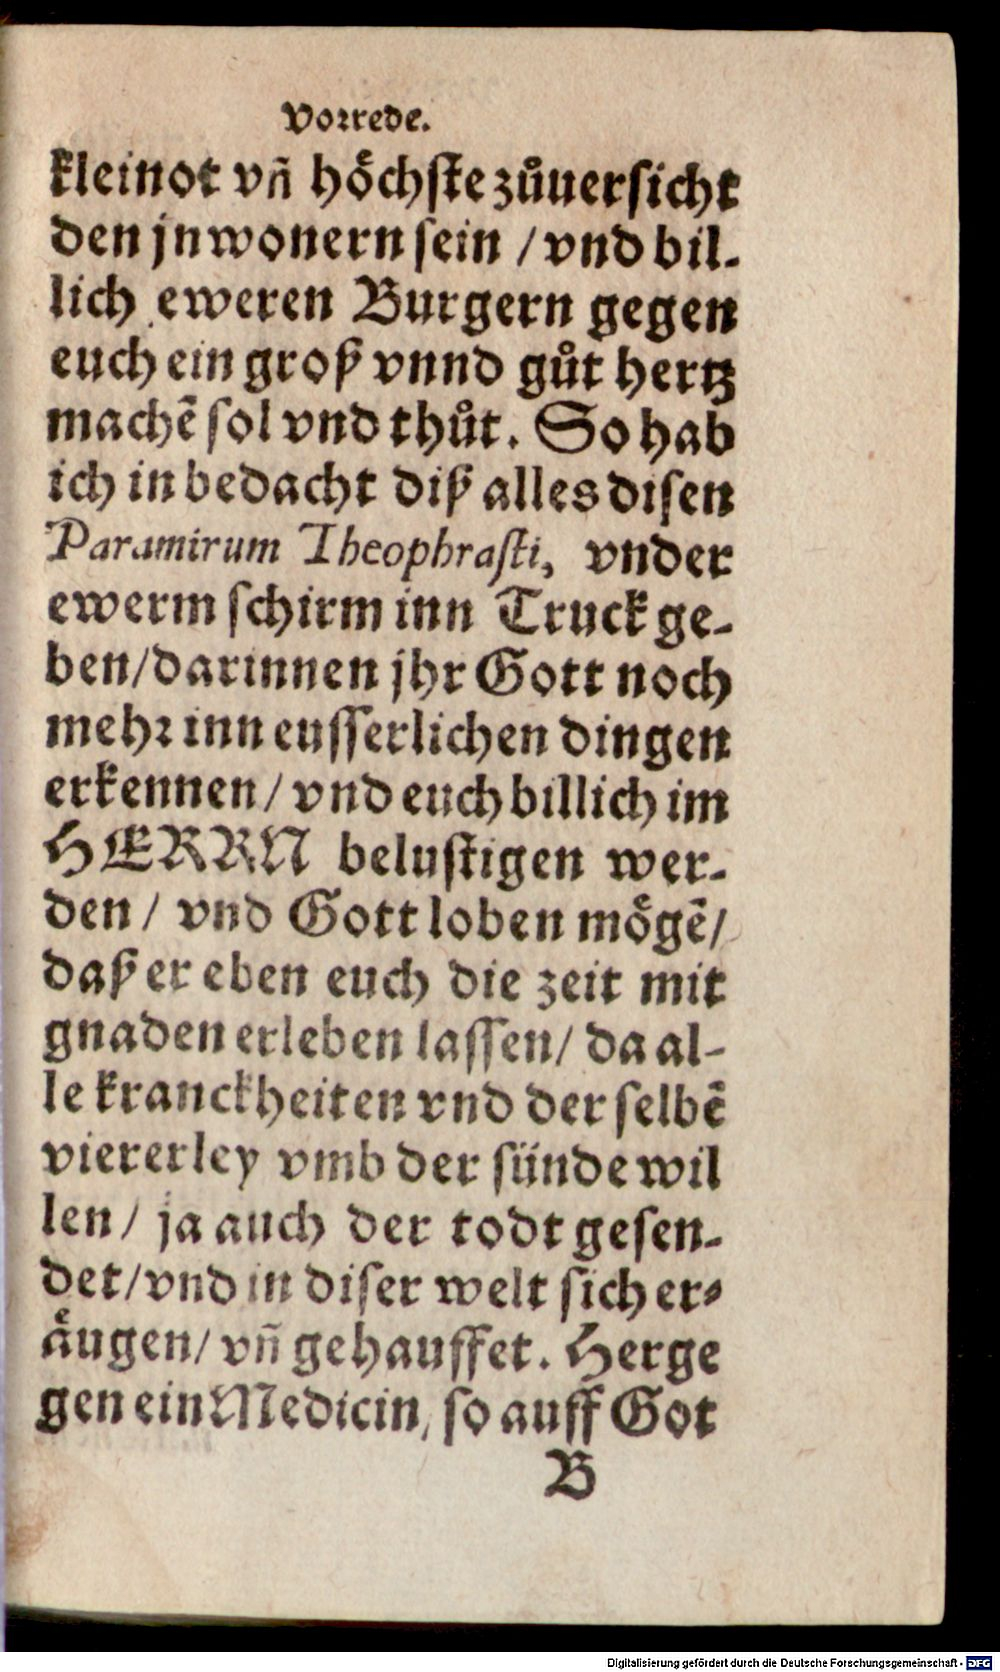 Vorrede.
kleinot vñ hoͤchste zuͦuersicht
den jnwonern sein / vnd bil-
lich eweren Burgern gegen
euch ein groß vnnd guͦt hertz
machẽ sol vnd thuͦt. So hab
ich in bedacht diß alles disen
Paramirum Theophrasti, vnder
ewerm schirm inn Truck ge-
ben/darinnen jhr Gott noch
mehr inn eusserlichen dingen
erkennen / vnd euch billich im
HERRN belustigen wer-
den / vnd Gott loben moͤgẽ/
daß er eben euch die zeit mit
gnaden erleben lassen/ da al-
le kranckheiten vnd der selbẽ
viererley vmb der sünde wil
len/ ja auch der todt gesen-
det/vnd in diser welt sich er-
aͤugen/ vñ gehauffet. Herge
gen ein Medicin, so auff Got
B
Digitalisierung gefördert durch die Deutsche Forschungsgemeinschaft - DFG